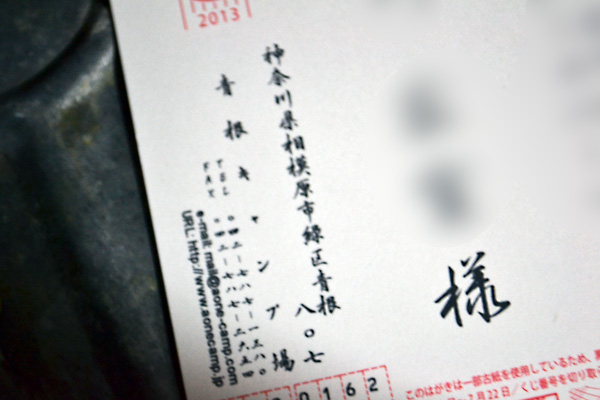 2013
様
神奈川県相模原市緑区青根
八〇七
青根キャンプ場
TEL 〇四二-七八七-一三八〇
FAX 〇四二-七八七-二六五四
e-mail: mail@aone-camp.com
URL: http://www.aonecamp.jp
0162
このはがきは一部古紙を使用しているため、
7月22日/くじ番号を切り取